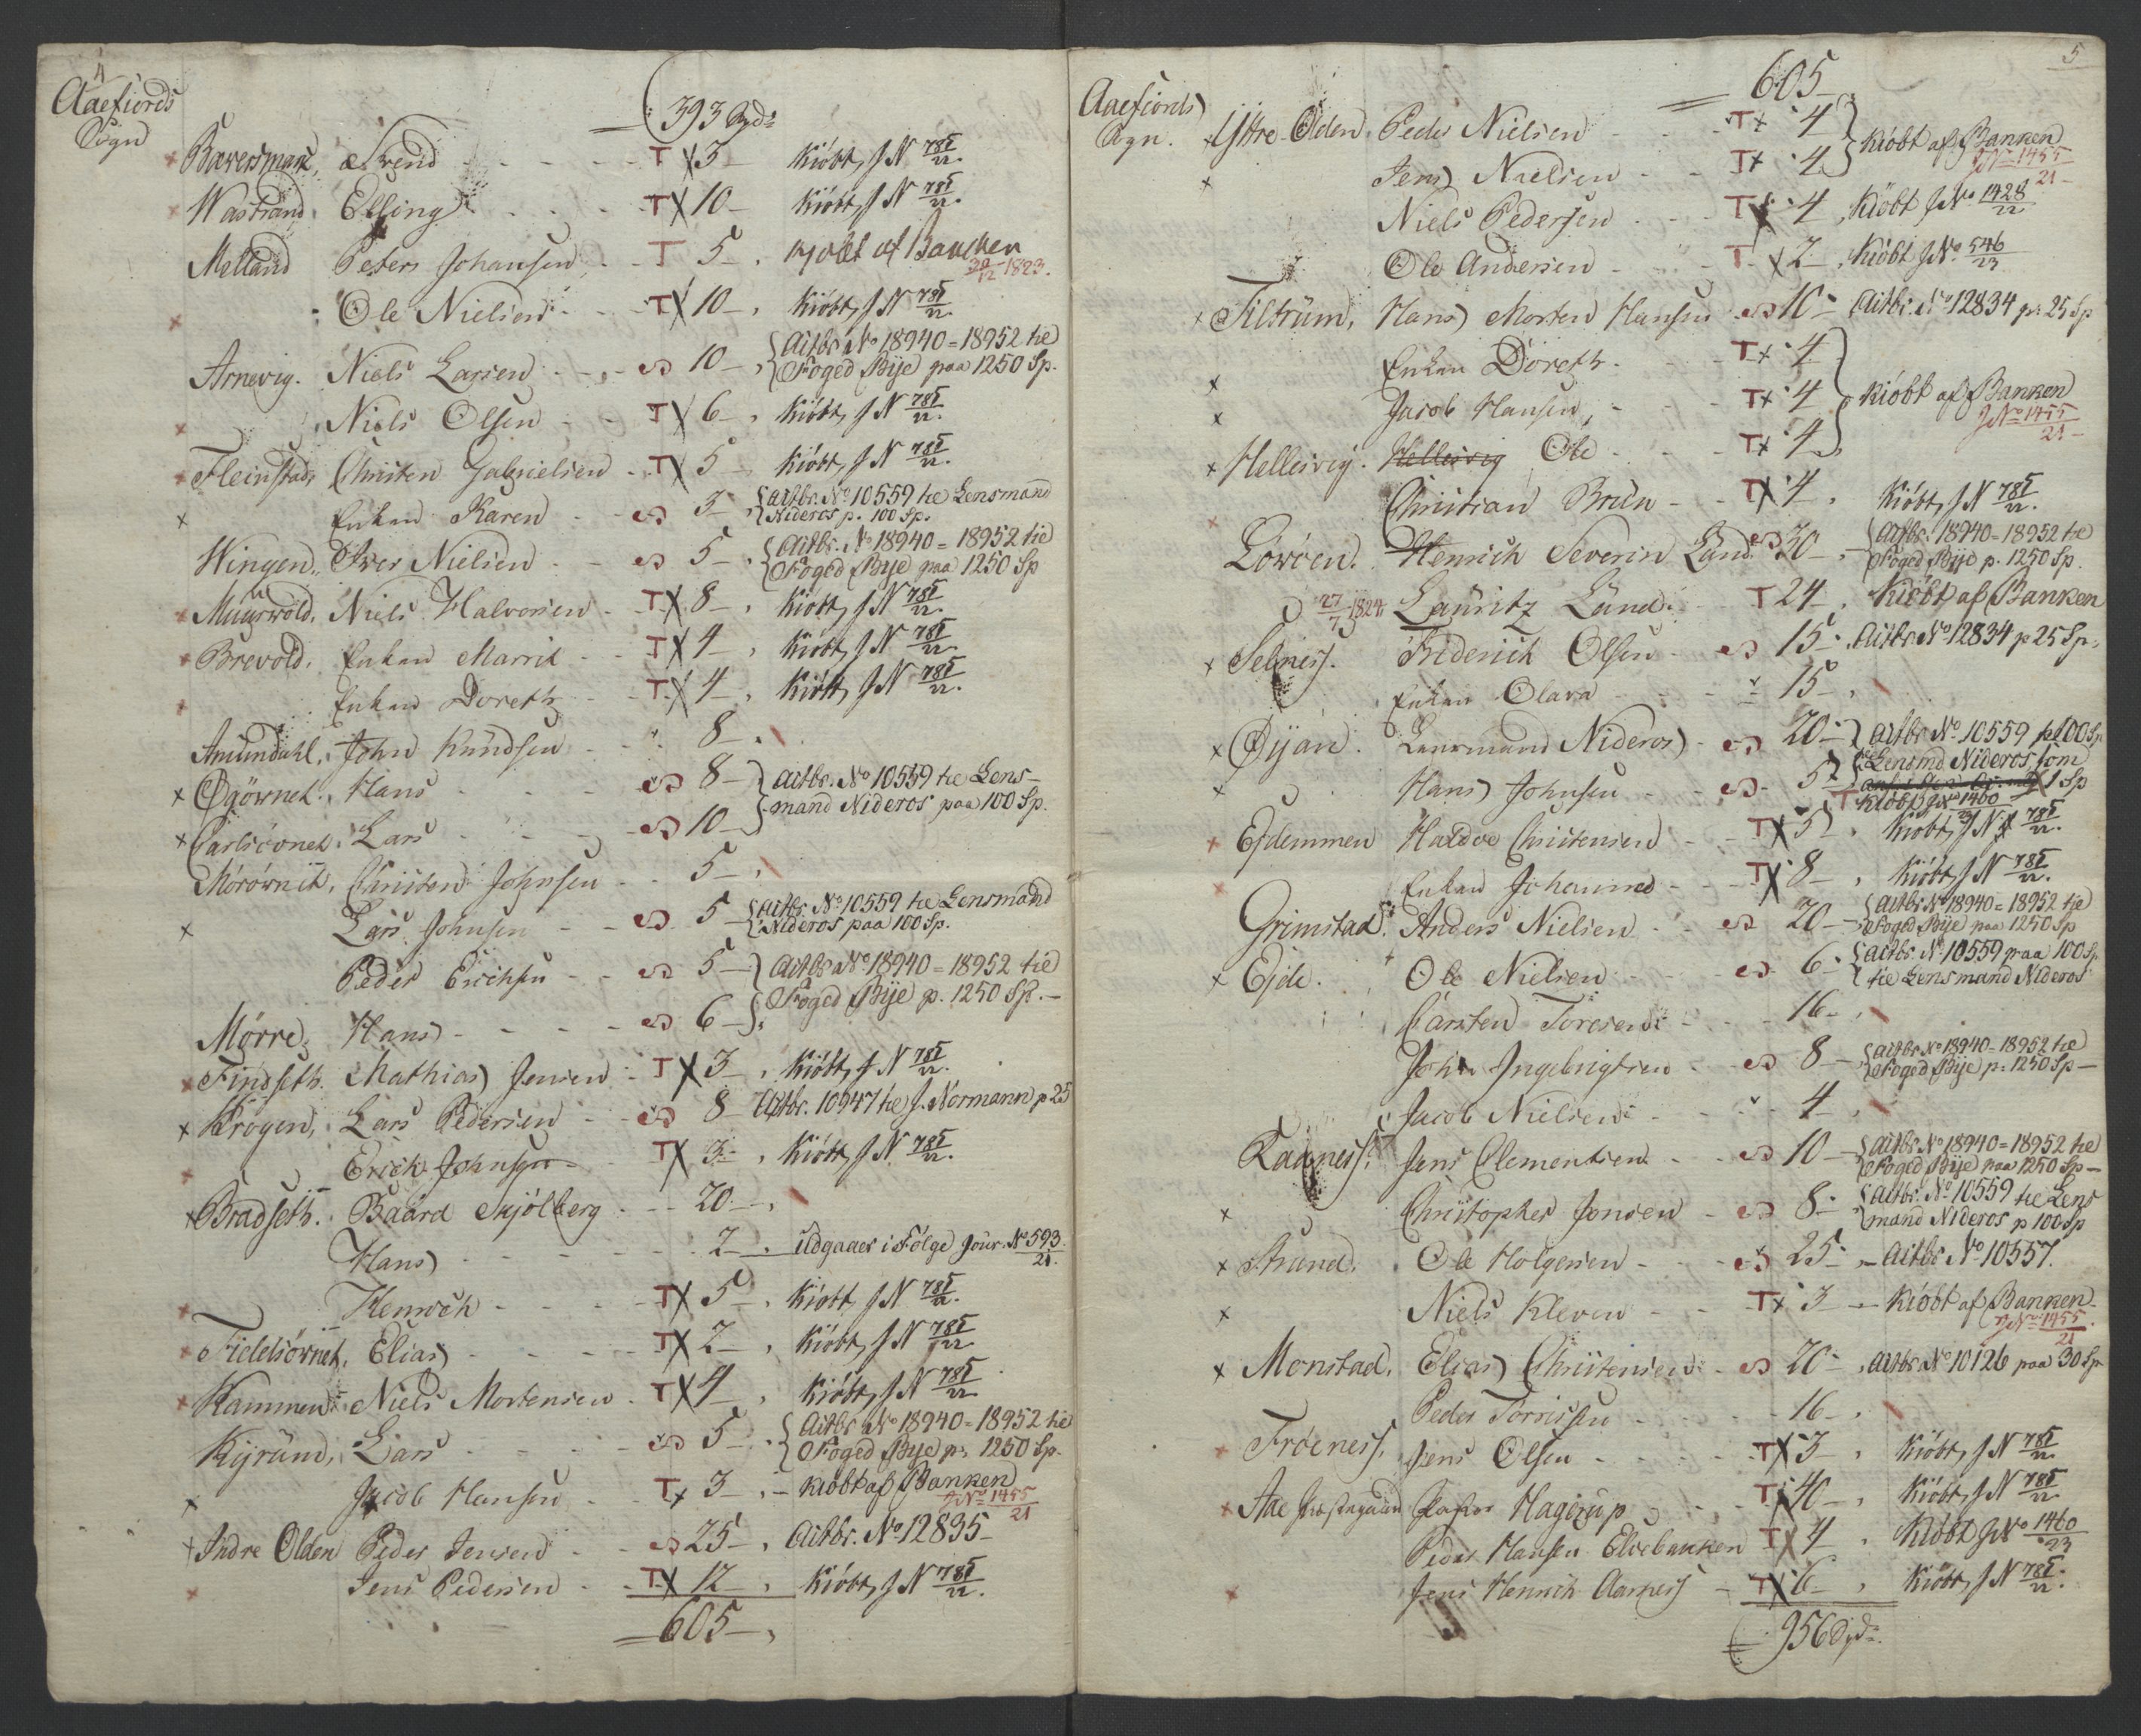 4
Aaefiords
Sogn
393 Spd:
Svend - T X 3 - Kiöbt, J N 781/22.
Elling - T X 10 - Kiöbt, J N 781/22.
Melland Peter Johansen - T 5 - Kjöbt af Banken 30/12 1823.
Ole Nielsen - T X 10 - Kiöbt, J N 781/22.
Arnevig. Niels Larsen - 10 - Actbr. No 18940 = 18952 til
Foged Bye paa 1250 Sp.
Niels Olsen - T X 6 - Kiöbt, J N 781/22.
Fleinstad, Christen Gabrielsen - T X 5 - Kiöbt, J N 781/22.
x Enken Karen - 3 - Actbr. No 10559 til Lensmand
Nideros p. 100 Sp.
Wingen, Iver Nielsen - 5 - Actbr. No 18940 = 18952 til
Foged Bye paa 1250 Sp
Niels Halvorsen - T X 8 - Kiöbt, J N 781/22.
Brevold, Enken Marrit - T X 4 - Kiöbt, J N 781/22.
Enken Doreth - T X 4 - Kiöbt, J N 781/22.
Amundahl, John Knudsen - 8 -
x Hans - 8 - Actbr. No 10559 til Lens-
mand Nideros paa 100 Sp.
x Lars - 10 -
Christen Johnsen - 5 -
x Lars Johnsen - 5 - Actbr. No 10559 til Lensmand
Nideros paa 100 Sp.
Peder Erichsen - 5 - Actbr. No 18940 = 18952 til
Foged Bye p. 1250 Sp. -
Mörre, Hans - 6 -
Findseth. Mathias Jensen - T X 3 - Kiöbt, J N 781/22.
x Krogen, Lars Pedersen - 8 - Actbr. 10947 til J. Normann p 25
Erick Johnsen - T X 3 - Kiöbt, J N 781/22.
x Bradseth. Baard Skjölberg - 20 -
Hans - 2 - Udgaaer i Fölge Jour. No 593/21.
Henrich - T X 5 - Kiöbt, J N 781/22.
Elias - T X 2 - Kiöbt, J N 781/22.
Kammen Niels Mortensen - T X 4 - Kiöbt, J N 781/22.
Kyrund, Lars - 5 - Actbr. No 18940 = 18952 til
Foged Bye p. 1250 Sp.
x Jacob Hansen - T x 3 - Kiöbt af Banken
J No 1455/21
x Indre Olden Peder Jensen - 25 - Actbr. No 12835 -
Jens Pedersen - T X 12 - Kiöbt, J N 781/22.
605 -
5
Aaefiords
Sogn.
605
x Ystre Olden. Peder Nielsen - T x 4 Kiöbt af Banken
J No 1455/21
x Jens Nielsen - T x 4
Niels Pedersen - T X 4 Kiöbt J No 1428/22
Ole Andersen - T X 2 - Kiöbt J No. 546/23
x Tiltrum, Hans Morten Hansen - 10 - Actbr. No 12834 p. 25 Sp
x Enken Doreth - T x 4
x Jacob Hansen - T x 4 Kiöbt af Banken
J No 1455/21 -
x Hellesvig. Hellesvig Ole - T x 4
Christian Bruun - T X 4 - Kiöbt, J N 781/22.
Henrich Severin Lund - 30 - Actbr. 18940 = 18952 til
Foged Bye p. 1250 Sp.
27/7 1824 Lauritz Lund - T 24 - Kiöbt af Banken
x Selness. Friderich Olsen - 15 - Actbr. No 12834 p 25 Sp.
Enken Olava - 15 -
x Öyan. Lensmand Nideros - 20 - Actbr. No 10559 p 100 Sp
til Lensmd Nideros som
x Hans Johnsen - 5 - 1 Sp
T Kiöbt J No 1460/23
Ejdemmen Haldor Christensen - T X 5 - Kiöbt, J N 781/22.
Enken Johanna - T X 8 - Kiöbt, J N 781/22.
Grimstad. Anders Nielsen - 20 - Actbr No 18940 = 18952 til
Foged Bye paa 1250 Sp
x Ejde. Ole Nielsen - 6 - Actbr. No 10559 paa 100 Sp.
til Lensmand Nideros
Carsten Toresen - 16 -
John Ingebrigtsen - 8 - Actbr. No 18940 = 18952 til
Foged Bye p. 1250 Sp -
Jacob Nielsen - 4 -
Jens Clementsen - 10 - Actbr. No 18940 = 18952 til
Foged Bye paa 1250 Sp -
x Christopher Jonsen - 8 - Actbr. No 10559 til Lens
mand Nideros p 100 Sp
x Strand. Ole Holgersen - 25 - Actbr No 10557.
x Niels Kleven - T x 3 - Kiöbt af Banken
J No 1455/21.
x Monstad. Elias Christensen - 20 - Actbr No 10126 paa 30 Sp
Peder Torrissen - 16 -
Fröeness. Jens Olsen - T X 3 - Kiöbt, J N 781/22
Aae Præstegaard Pastor Hagerup - T X 40 - Kiöbt, J N 781/22.
Peder Hansen Elvebakken T X 4 - Kiöbt J No 1460/23
Jens Henrich Aarness - T X 6 - Kiöbt, J N 781/22.
956 Spd: